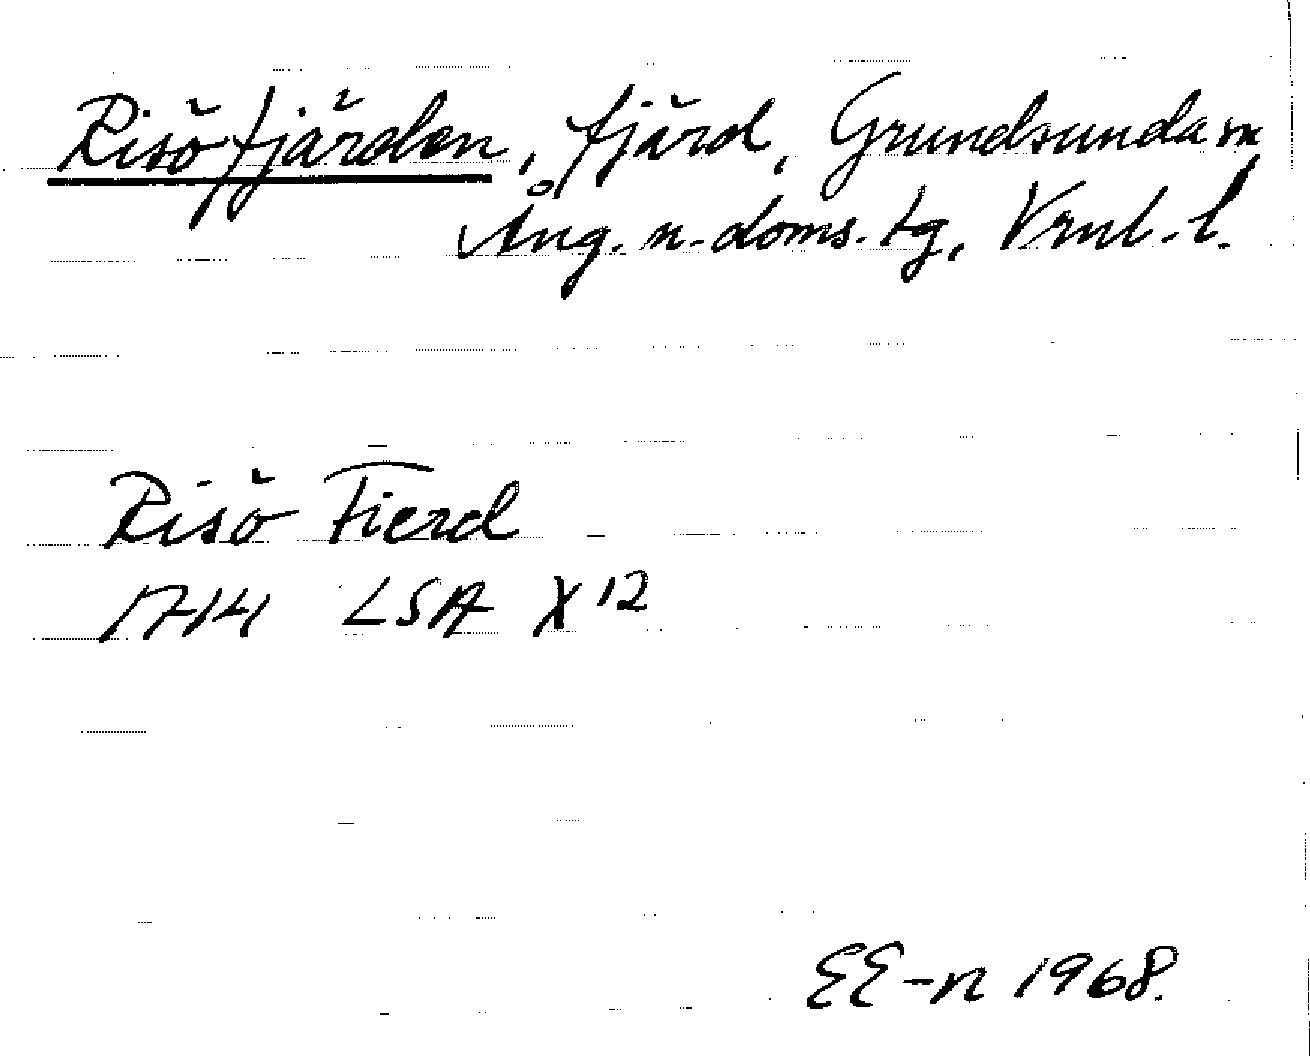 Risöfjärden, fjärd, Grundsunda sn
Ång. n. doms. tg, Vrnl. l.
Risö Fierd
1714 LSA X 12
EE-n 1968.